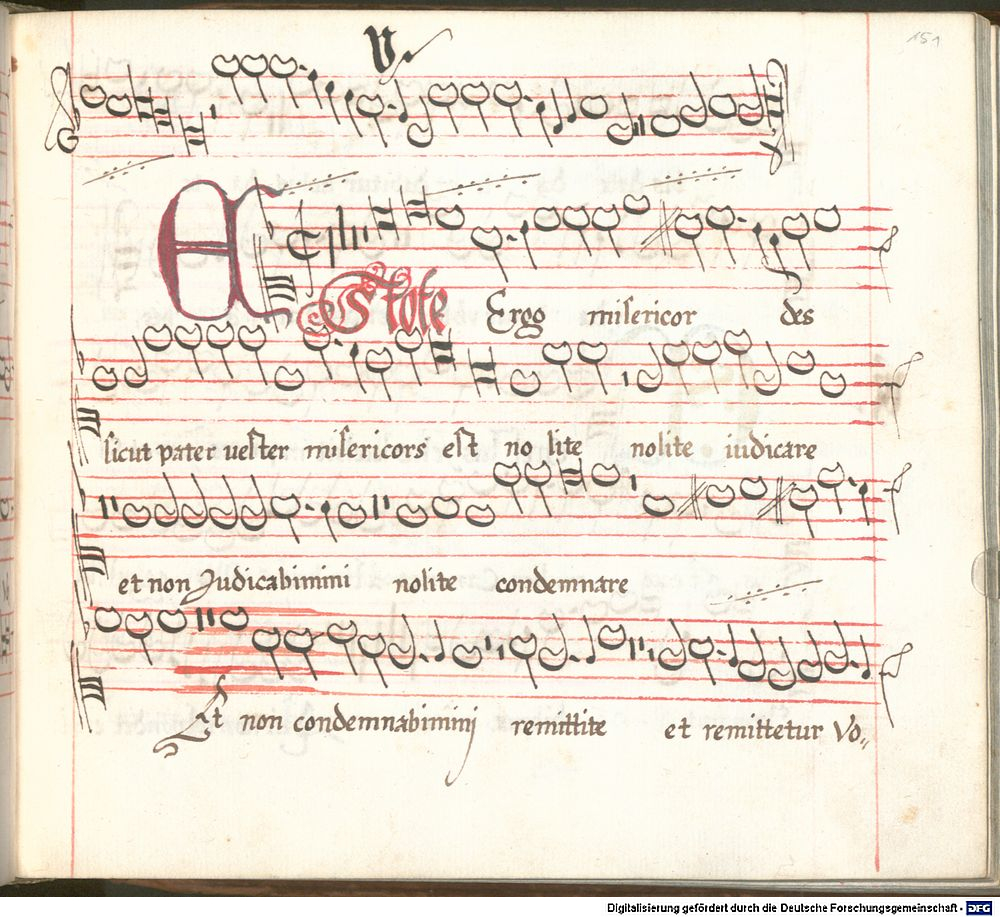 V.
151
EStote Ergo misericor des
sicut pater uester misericors est no lite nolite iudicare
et non Judicabimini nolite condemnare
Et non condemnabiminj remittite et remittetur Vo„
Digitalisierung gefördert durch die Deutsche Forschungsgemeinschaft - DFG